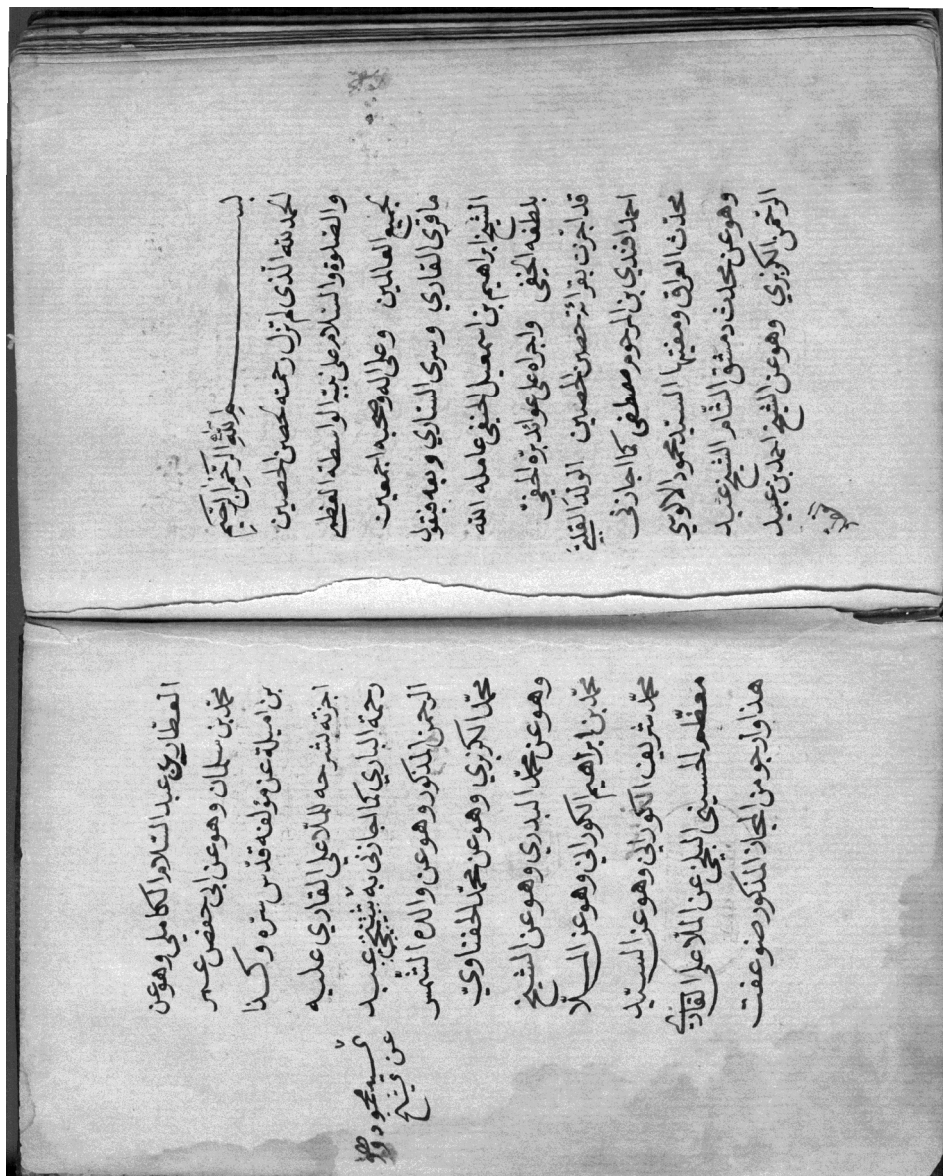 بسم الله الرحمن الرحيم
الحمد لله الذي لم تزل رحمته لحصن الحصين
والصلوة والسلام على نبيه الواسطة العظمى
لجميع العالمين وعلى اله وصحبه اجمعين
ما قرئ القاري وسرى الساري وبعد فيقول
الشيخ ابراهيم بن اسمعيل الحنفي عامله الله
بلطفه الخفي واجراه على عوائد بره الحفي
قد اجزت بقرائة حصن الحصين الولد القلبي
احمد افندي بن المرحوم مصطفى كما اجازني
محدث العراق ومفتيها السيد محمود الالوسي
وهو عن محدث دمشق الشام الشيخ عبد
الرحمن الكزبري وهو عن الشيخ احمد بن عبيد
العطار عن عبد السلام الكاملي وهو عن
محمد بن سلمان وهو عن ابي حفص عمر
بن اميلة عن مؤلفه قدس سره وكذا
اجزته بشرحه للملا علي القاري عليه
رحمة الباري كما اجازني به شيخي عبد
الرحمن المذكور وهو عن والده الشمس
محمد الكزبري وهو عن محمد الحفناوي
وهو عن محمد البديري وهو عن الشيخ
محمد بن ابراهيم الكوراني وهو عن الملا
محمد شريف الكوراني وهو عن السيد
معظم الحسيني البلخي عن الملا علي القاري
هذا وارجو من المجاز المذكور ضوعفت
السيد محمود
عن شيخ